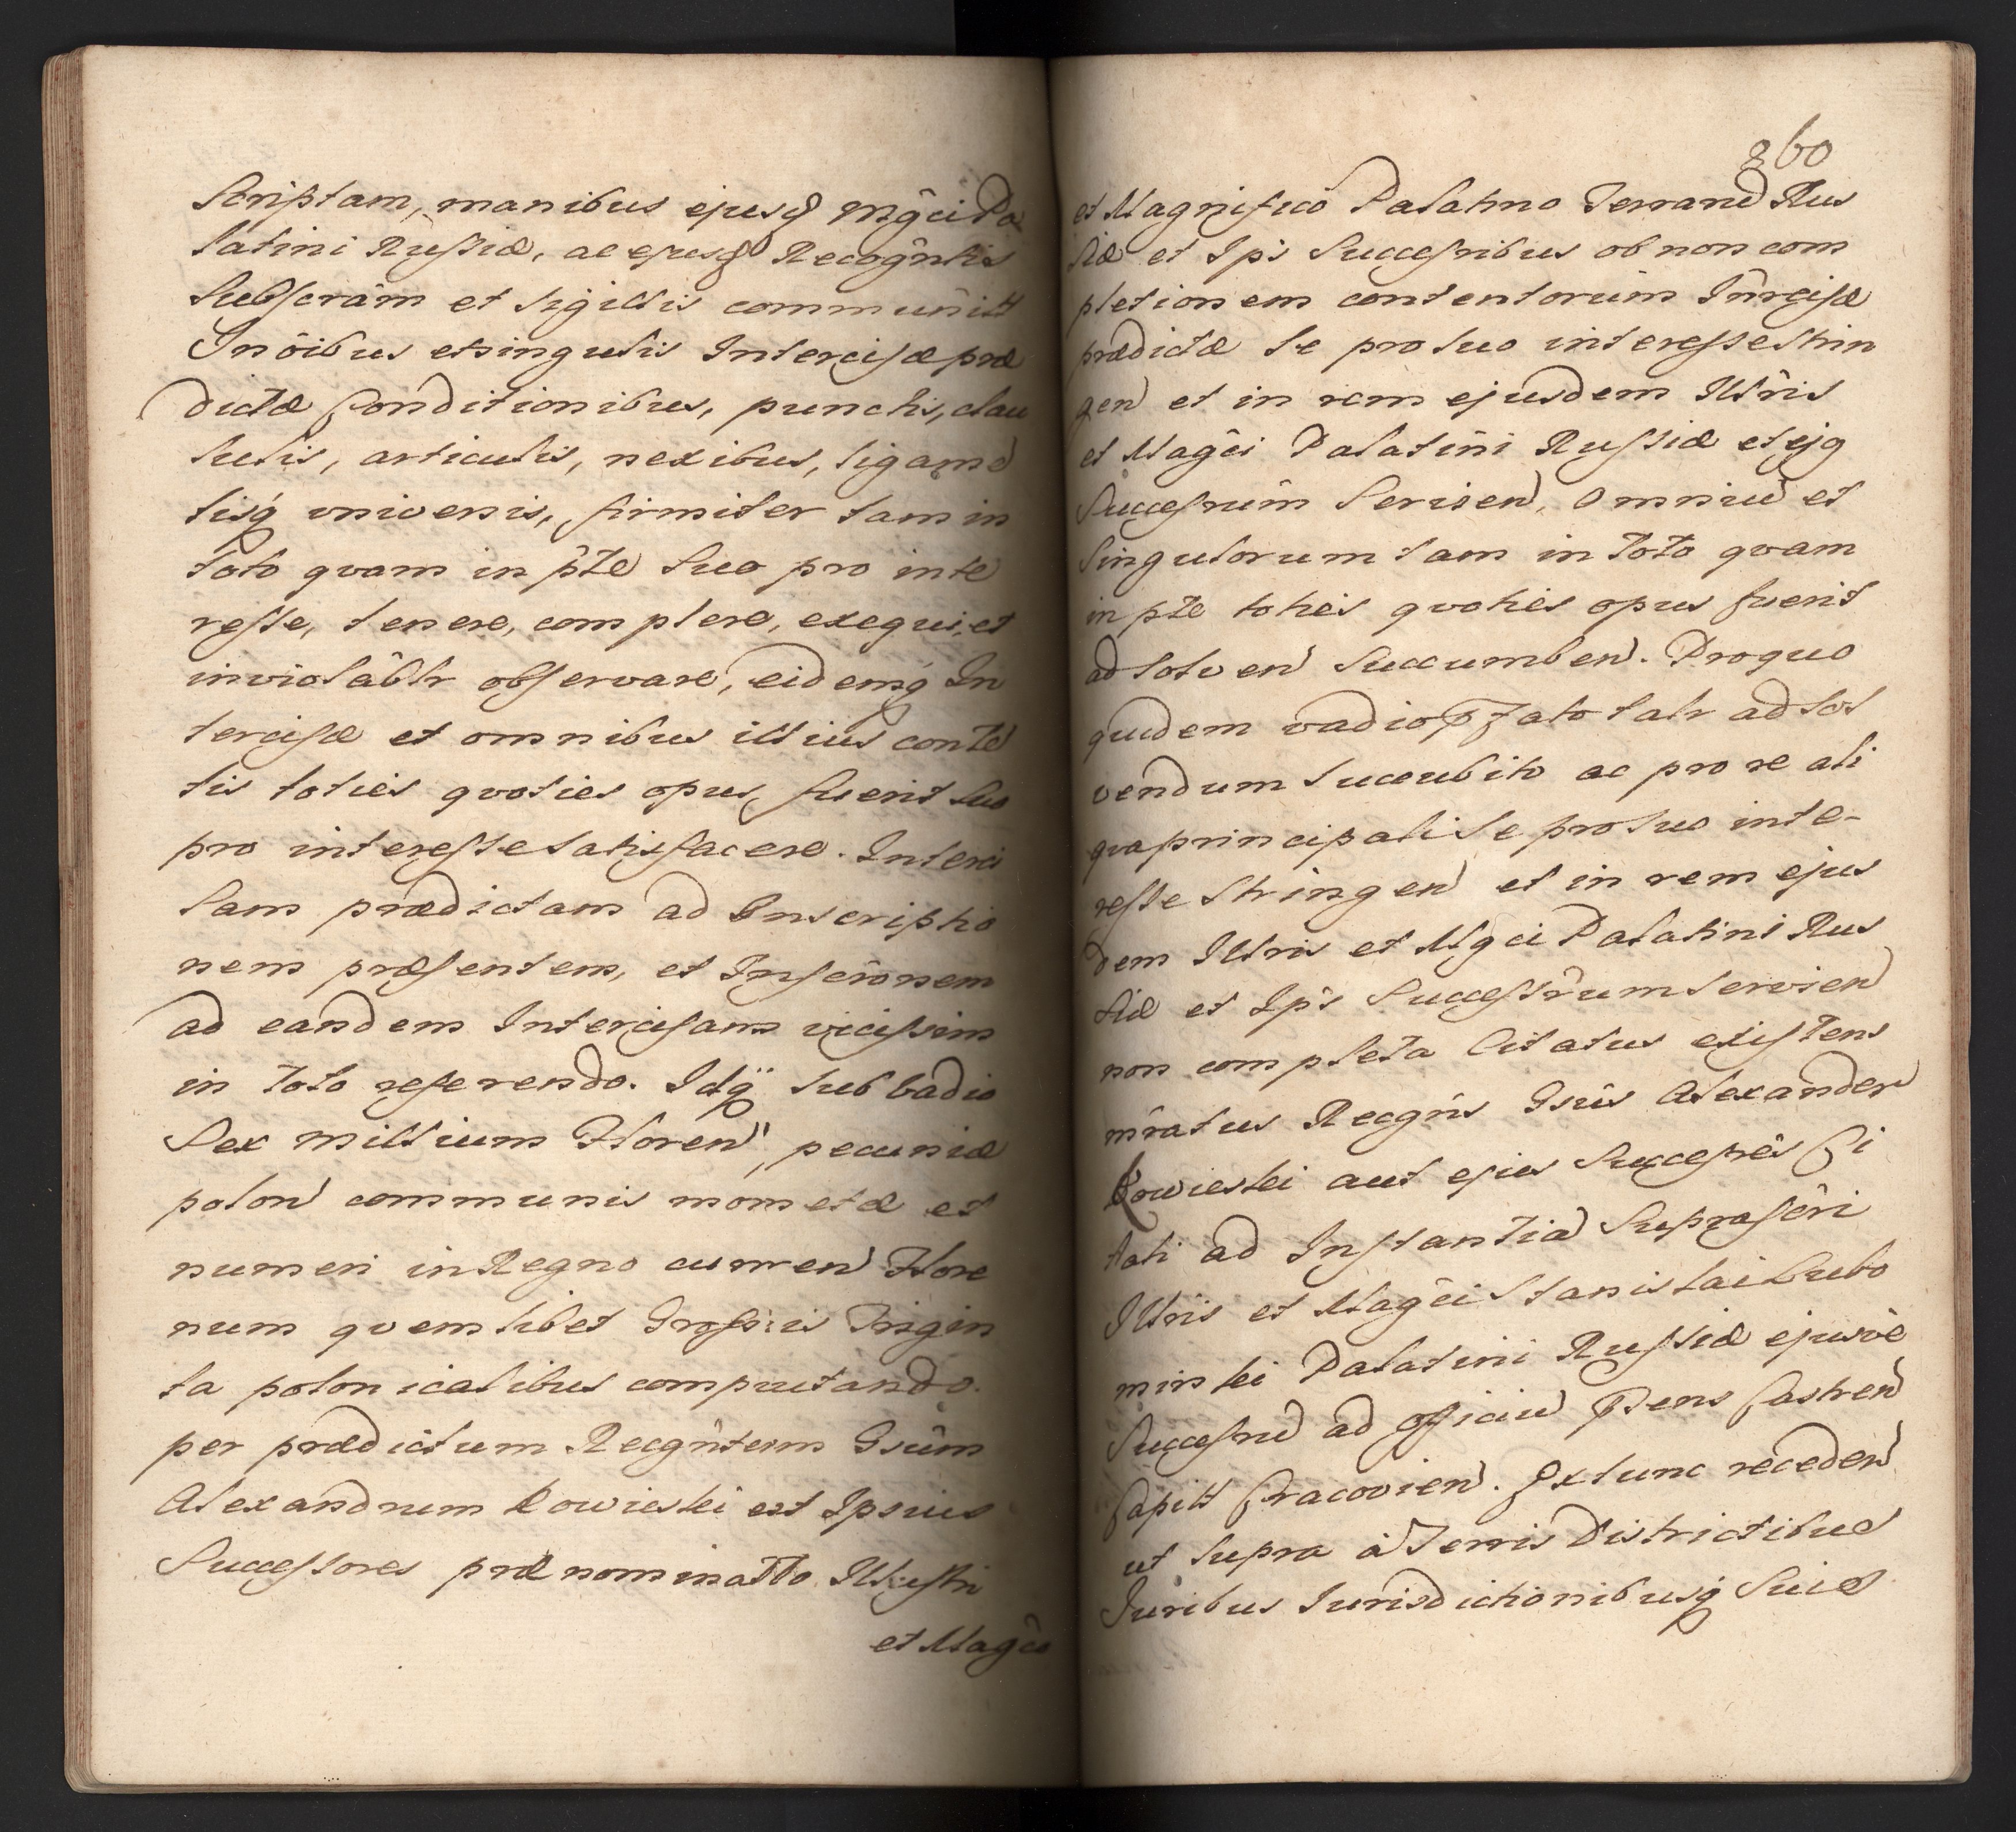 Scriptam, manibus ejusq Mgci Pa
latini Russiæ, ac ejusq Recogntis
Subscrâm et sigillis communitt
In oibus et singulis Intercisæ præ
dictæ Conditionibus, punctis, clau
sulis, articulis, nexibus, ligame
tisq universis, firmiter tam in
toto qvam in pte suo pro inte
resse, tenere, complere, exequi, et
inviolablr observare, eidemq In
tercisæ et omnibus illius conte
tis toties qvoties opus fuerit suo
pro interesse satisfacere. Interci
sam prædictam ad Inscriptio
nem præsentem, et Inscronem
ad eandem Intercisam vicissim
in toto referendo. Idq sub vadio
Sex Millium Floren, pecuniæ
polon communis monetæ et
numeri in Regno curren Flore
num qvemlibet Grossis Trigin
ta polonicalibus computando.
per prædictum Recgntem Gsûm
Alexandrum Łowieski est Ipsius
Successores prænominatto Illustri
et Magco
360
et Magnifico Palatino Terrarū Rus
siæ et Ips Successribus ob non com
pletionem contentorum Inrcisæ
prædictæ se pro suo interesse strin
gen et in rem ejusdem Illris
et Magci Palatini Russiæ et ejq
Successrum Servien, omniū et
singulorum tam in toto qvam
in pte toties qvoties opus fuerit
ad solven succumben. Pro quo
quidem vadio sat talr ad sol
vendum succubito ac pro re ali
qva principali se pro suo inte-
resse stringen et in rem ejus
dem Illris et Mgci Palatini Rus
siæ et Ips Successrum servien
non completa Citatus existens
mratus Recgns Gsus Alexander
Łowieski aut ejus Successres Ci
tati ad Instantiā Suprascri
Illris et Magci Stanislai Lubo
mirski Palatini Russiæ ejusve
Successrū ad officiū pdens Castren
Capitt Cracovien. Extunc receden
ut supra à Terris Districtibus
Juribus Jurisdictionibusq suis